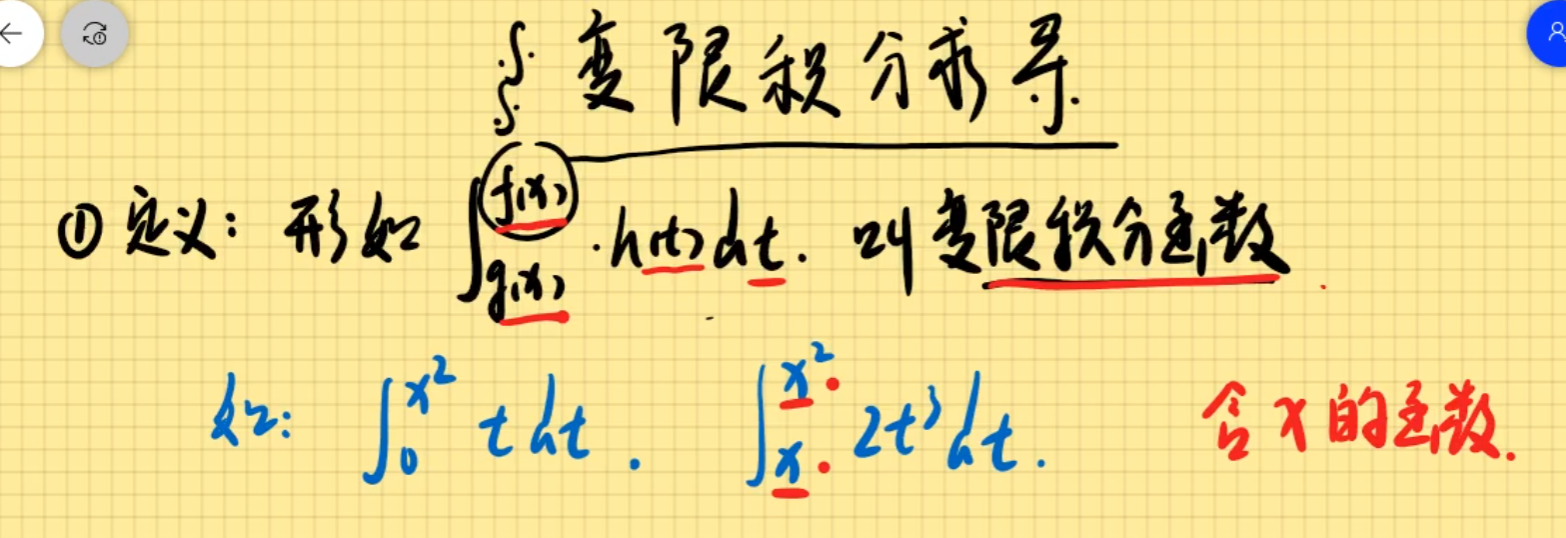 § 变限积分求导.
① 定义: 形如 ∫_{g(x)}^{f(x)} · h(t)dt. 叫变限积分函数.
如: ∫_0^{x^2} t dt. ∫_x^{x^2} 2t^3 dt. 含x的函数.